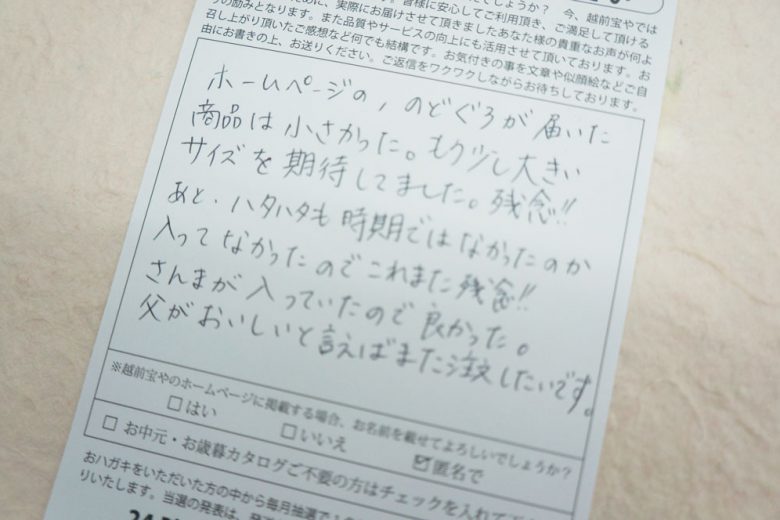 でしょうか？　今、越前宝やでは
皆様に安心してご利用頂き、ご満足して頂ける
ために、実際にお届けさせて頂きましたあなた様の貴重なお声が何よ
りの励みとなります。また品質やサービスの向上にも活用させて頂いております。お
召し上がり頂いたご感想など何でも結構です。お気付きの事を文章や似顔絵などご自
由にお書きの上、お送りください。ご返信をワクワクしながらお待ちしております。
ホームページの，のどぐろが届いた
商品は小さかった。もう少し大きい
サイズを期待してました。残念!!
あと、ハタハタも時期ではなかったのか
入ってなかったのでこれまた残念!!
さんまが入っていたので良かった。
父がおいしいと言えばまた注文したいです。
※越前宝やのホームページに掲載する場合、お名前を載せてよろしいでしょうか？
□はい　□いいえ　☑匿名で
□ お中元・お歳暮カタログご不要の方はチェックを入れて
おハガキをいただいた方の中から毎月抽選で
りいたします。当選の発表は、